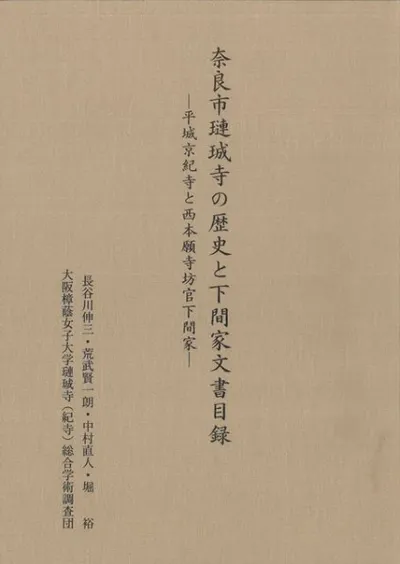 奈良市璉珹寺の歴史と下間家文書目録
―平城京紀寺と西本願寺坊官下間家―
長谷川伸三・荒武賢一朗・中村直人・堀 裕
大阪樟蔭女子大学璉珹寺（紀寺）総合学術調査団